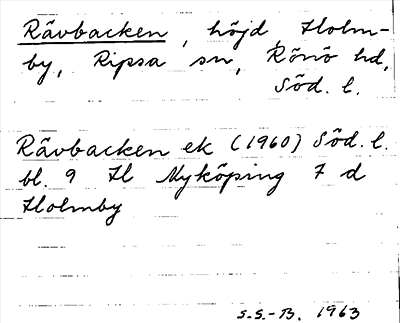 Rävbacken, höjd, Holm-
by, Ripsa sn, Rönö hd,
Söd. l.
Rävbacken ek (1960) Söd. l.
bl. 9 Il Nyköping 7 d
Holmby
S.S.-B. 1963